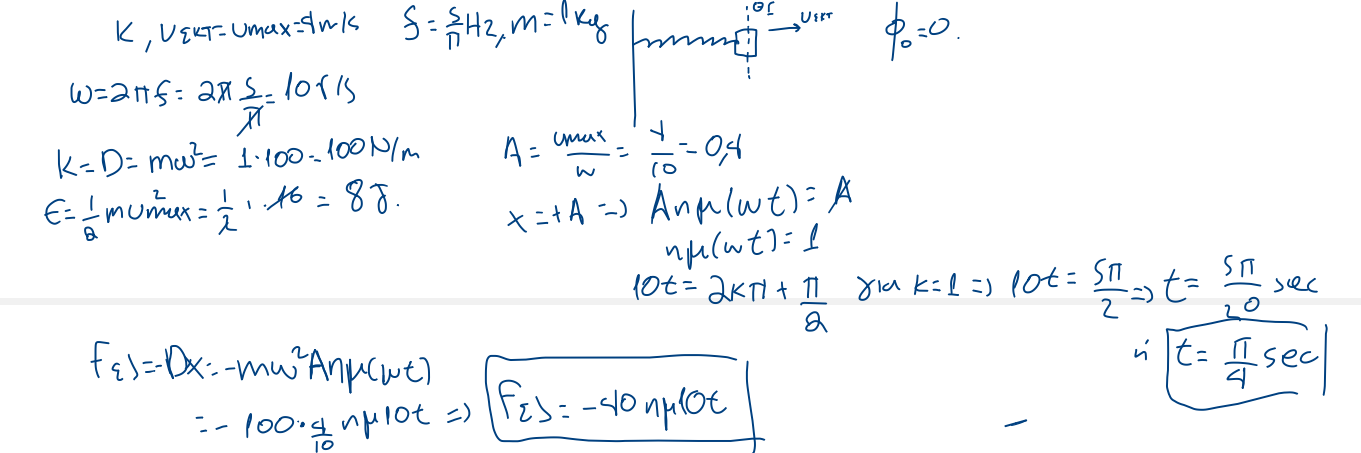 K, υεκτ=υmax=4m/s f=5/π Hz, m=1kg ΘΙ υεκτ φ₀=0.
ω=2πf=2π 5/π=10 r/s
K=D=mω²=1·100=100N/m A=υmax/ω=4/10=0,4
E=1/2 mυ²max=1/2·1·16=8J. x=+A => Aημ(ωt)=A
ημ(ωt)=1
10t=2κπ+π/2 για κ=1 => 10t=5π/2 => t=5π/20 sec
ή t=π/4 sec
Fελ=-Dx=-mω²Aημ(ωt)
=-100·4/10 ημ10t => Fελ=-40ημ10t